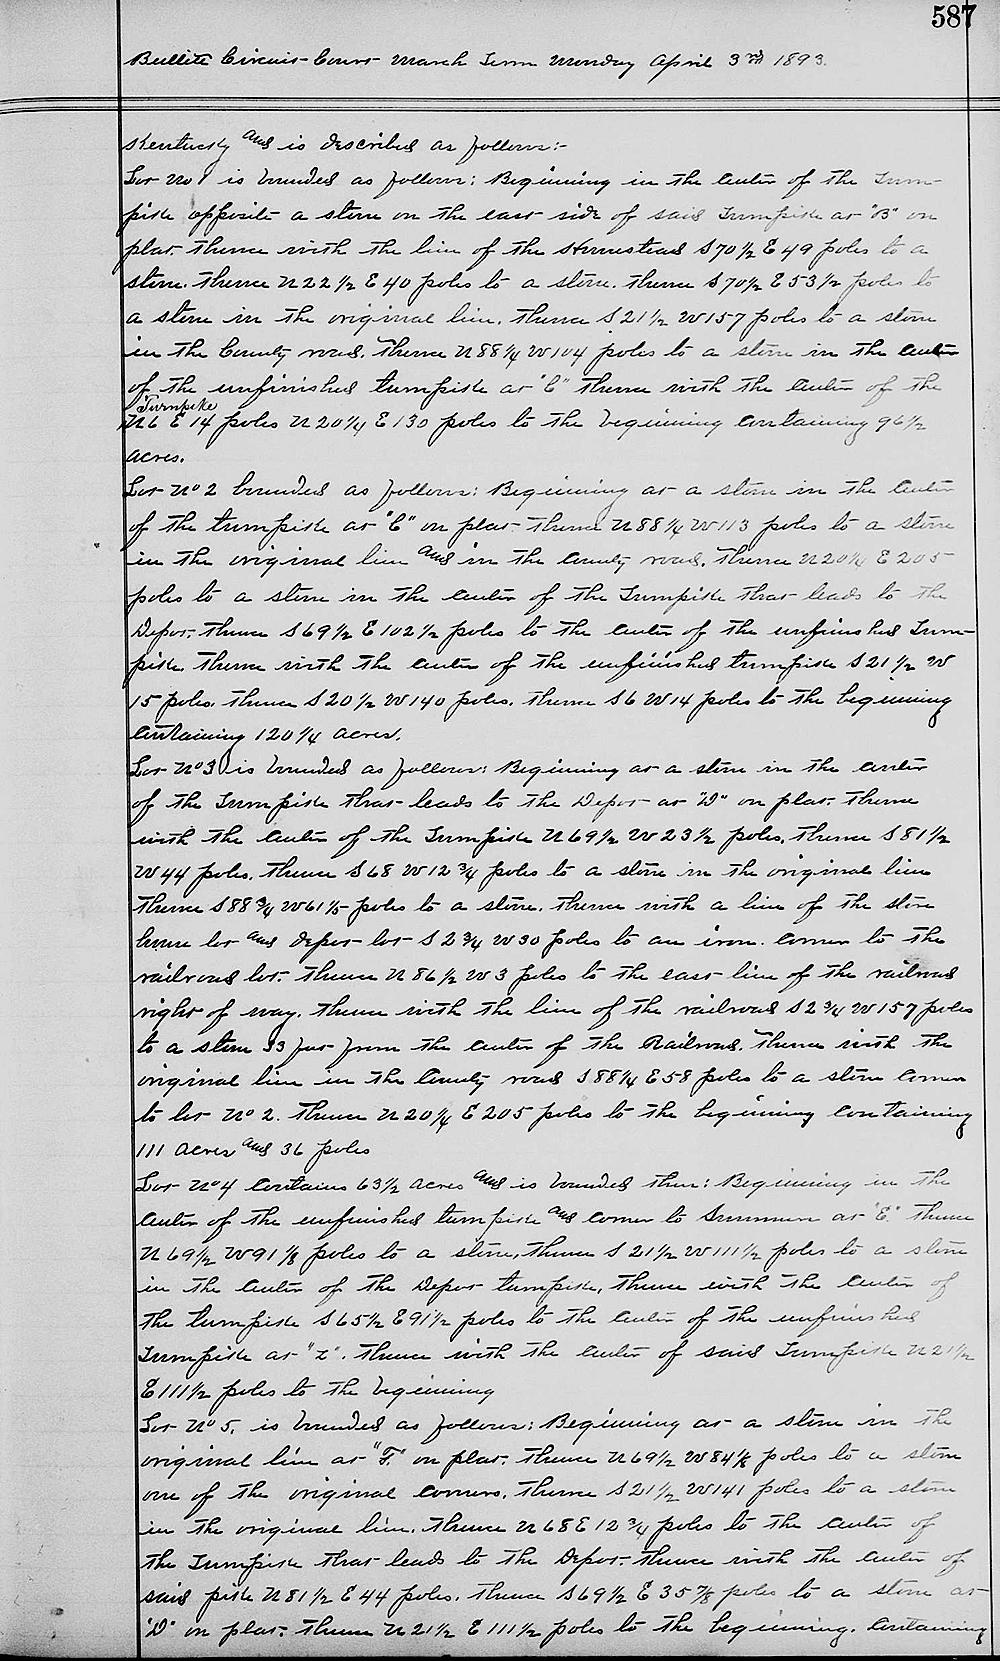 587
Bullitt Circuit Court March Term Monday April 3rd 1893.
Kentucky and is described as follows:-
Lot No 1 is bounded as follows: Beginning in the center of the Turn-
pike opposite a stone on the east side of said Turnpike at "B" on
plat. thence with the line of the Homestead S 70 1/2 E 49 poles to a
stone. thence N 22 1/2 E 40 poles to a stone. thence S 70 1/2 E 53 1/2 poles to
a stone in the original line. thence S 21 1/2 W 157 poles to a stone
in the County road. Thence N 88 1/4 W 104 poles to a stone in the center
of the unfinished turnpike at "C" thence with the center of the
Turnpike
N 6 E 14 poles N 20 1/4 E 130 poles to the beginning containing 96 1/2
acres.
Lot No 2 bounded as follows: Beginning at a stone in the center
of the turnpike at "C" on plat thence N 88 1/4 W 113 poles to a stone
in the original line and in the County road. Thence N 20 1/4 E 205
poles to a stone in the center of the Turnpike that leads to the
Depot. thence S 69 1/2 E 102 1/2 poles to the center of the unfinished Turn-
pike. thence with the center of the unfinished turnpike S 21 1/2 W
15 poles. thence S 20 1/2 W 140 poles. thence S 6 W 14 poles to the beginning
containing 120 1/4 acres.
Lot No 3 is bounded as follows: Beginning at a stone in the center
of the Turnpike that leads to the Depot at "D" on plat. thence
with the center of the Turnpike N 69 1/2 W 23 1/2 poles, thence S 81 1/2
W 44 poles. thence S 68 W 12 3/4 poles to a stone in the original line
thence S 88 3/4 W 61 1/5 poles to a stone. thence with a line of the store
house lot and depot lot S 2 3/4 W 30 poles to an iron. corner to the
railroad lot. thence N 86 1/2 W 3 poles to the east line of the railroad
right of way. thence with the line of the railroad S 2 3/4 W 157 poles
to a stone 33 feet from the center of the Railroad. Thence with the
original line in the County road S 88 1/4 E 58 poles to a stone corner
to lot No 2. thence N 20 1/4 E 205 poles to the beginning containing
111 acres and 36 poles
Lot No 4 contains 63 1/2 acres and is bounded thus: Beginning in the
center of the unfinished turnpike and corner to Simmons at "E" thence
N 69 1/2 W 91 1/8 poles to a stone, thence S 21 1/2 W 111 1/2 poles to a stone
in the center of the Depot turnpike, thence with the center of
the turnpike S 65 1/2 E 91 1/2 poles to the center of the unfinished
Turnpike at "Z". thence with the center of said Turnpike N 21 1/2
E 111 1/2 poles to the beginning
Lot No 5, is bounded as follows: Beginning at a stone in the
original line at "F" on plat. thence N 69 1/2 W 84 1/8 poles to a stone
one of the original corners. thence S 21 1/2 W 141 poles to a stone
in the original line. thence N 68 E 12 3/4 poles to the center of
the Turnpike that leads to the Depot. thence with the center of
said pike N 81 1/2 E 44 poles. thence S 69 1/2 E 35 7/8 poles to a stone at
"D" on plat. thence N 21 1/2 E 111 1/2 poles to the beginning. containing